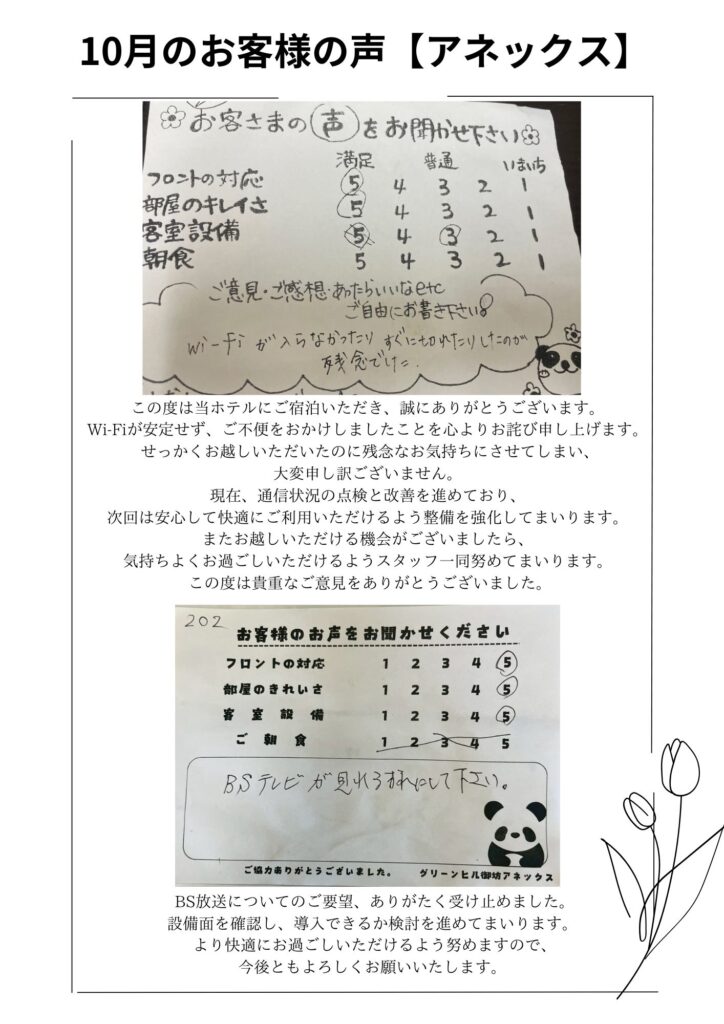 10月のお客様の声【アネックス】
お客さまの声をお聞かせ下さい
満足 普通 いまいち
フロントの対応 5 4 3 2 1
部屋のキレイさ 5 4 3 2 1
客室設備 5 4 3 2 1
朝食 5 4 3 2 1
ご意見・ご感想・あったらいいなetc
ご自由にお書き下さい。
Wi-Fiが入らなかったりすぐに切れたりしたのが
残念でした.
この度は当ホテルにご宿泊いただき、誠にありがとうございます。
Wi-Fiが安定せず、ご不便をおかけしましたことを心よりお詫び申し上げます。
せっかくお越しいただいたのに残念なお気持ちにさせてしまい、
大変申し訳ございません。
現在、通信状況の点検と改善を進めており、
次回は安心して快適にご利用いただけるよう整備を強化してまいります。
またお越しいただける機会がございましたら、
気持ちよくお過ごしいただけるようスタッフ一同努めてまいります。
この度は貴重なご意見をありがとうございました。
202
お客様のお声をお聞かせください
フロントの対応 1 2 3 4 5
部屋のきれいさ 1 2 3 4 5
客室設備 1 2 3 4 5
ご朝食 1 2 3 4 5
BSテレビが見れる様にして下さい。
ご協力ありがとうございました。 グリーンヒル御坊アネックス
BS放送についてのご要望、ありがたく受け止めました。
設備面を確認し、導入できるか検討を進めてまいります。
より快適にお過ごしいただけるよう努めますので、
今後ともよろしくお願いいたします。